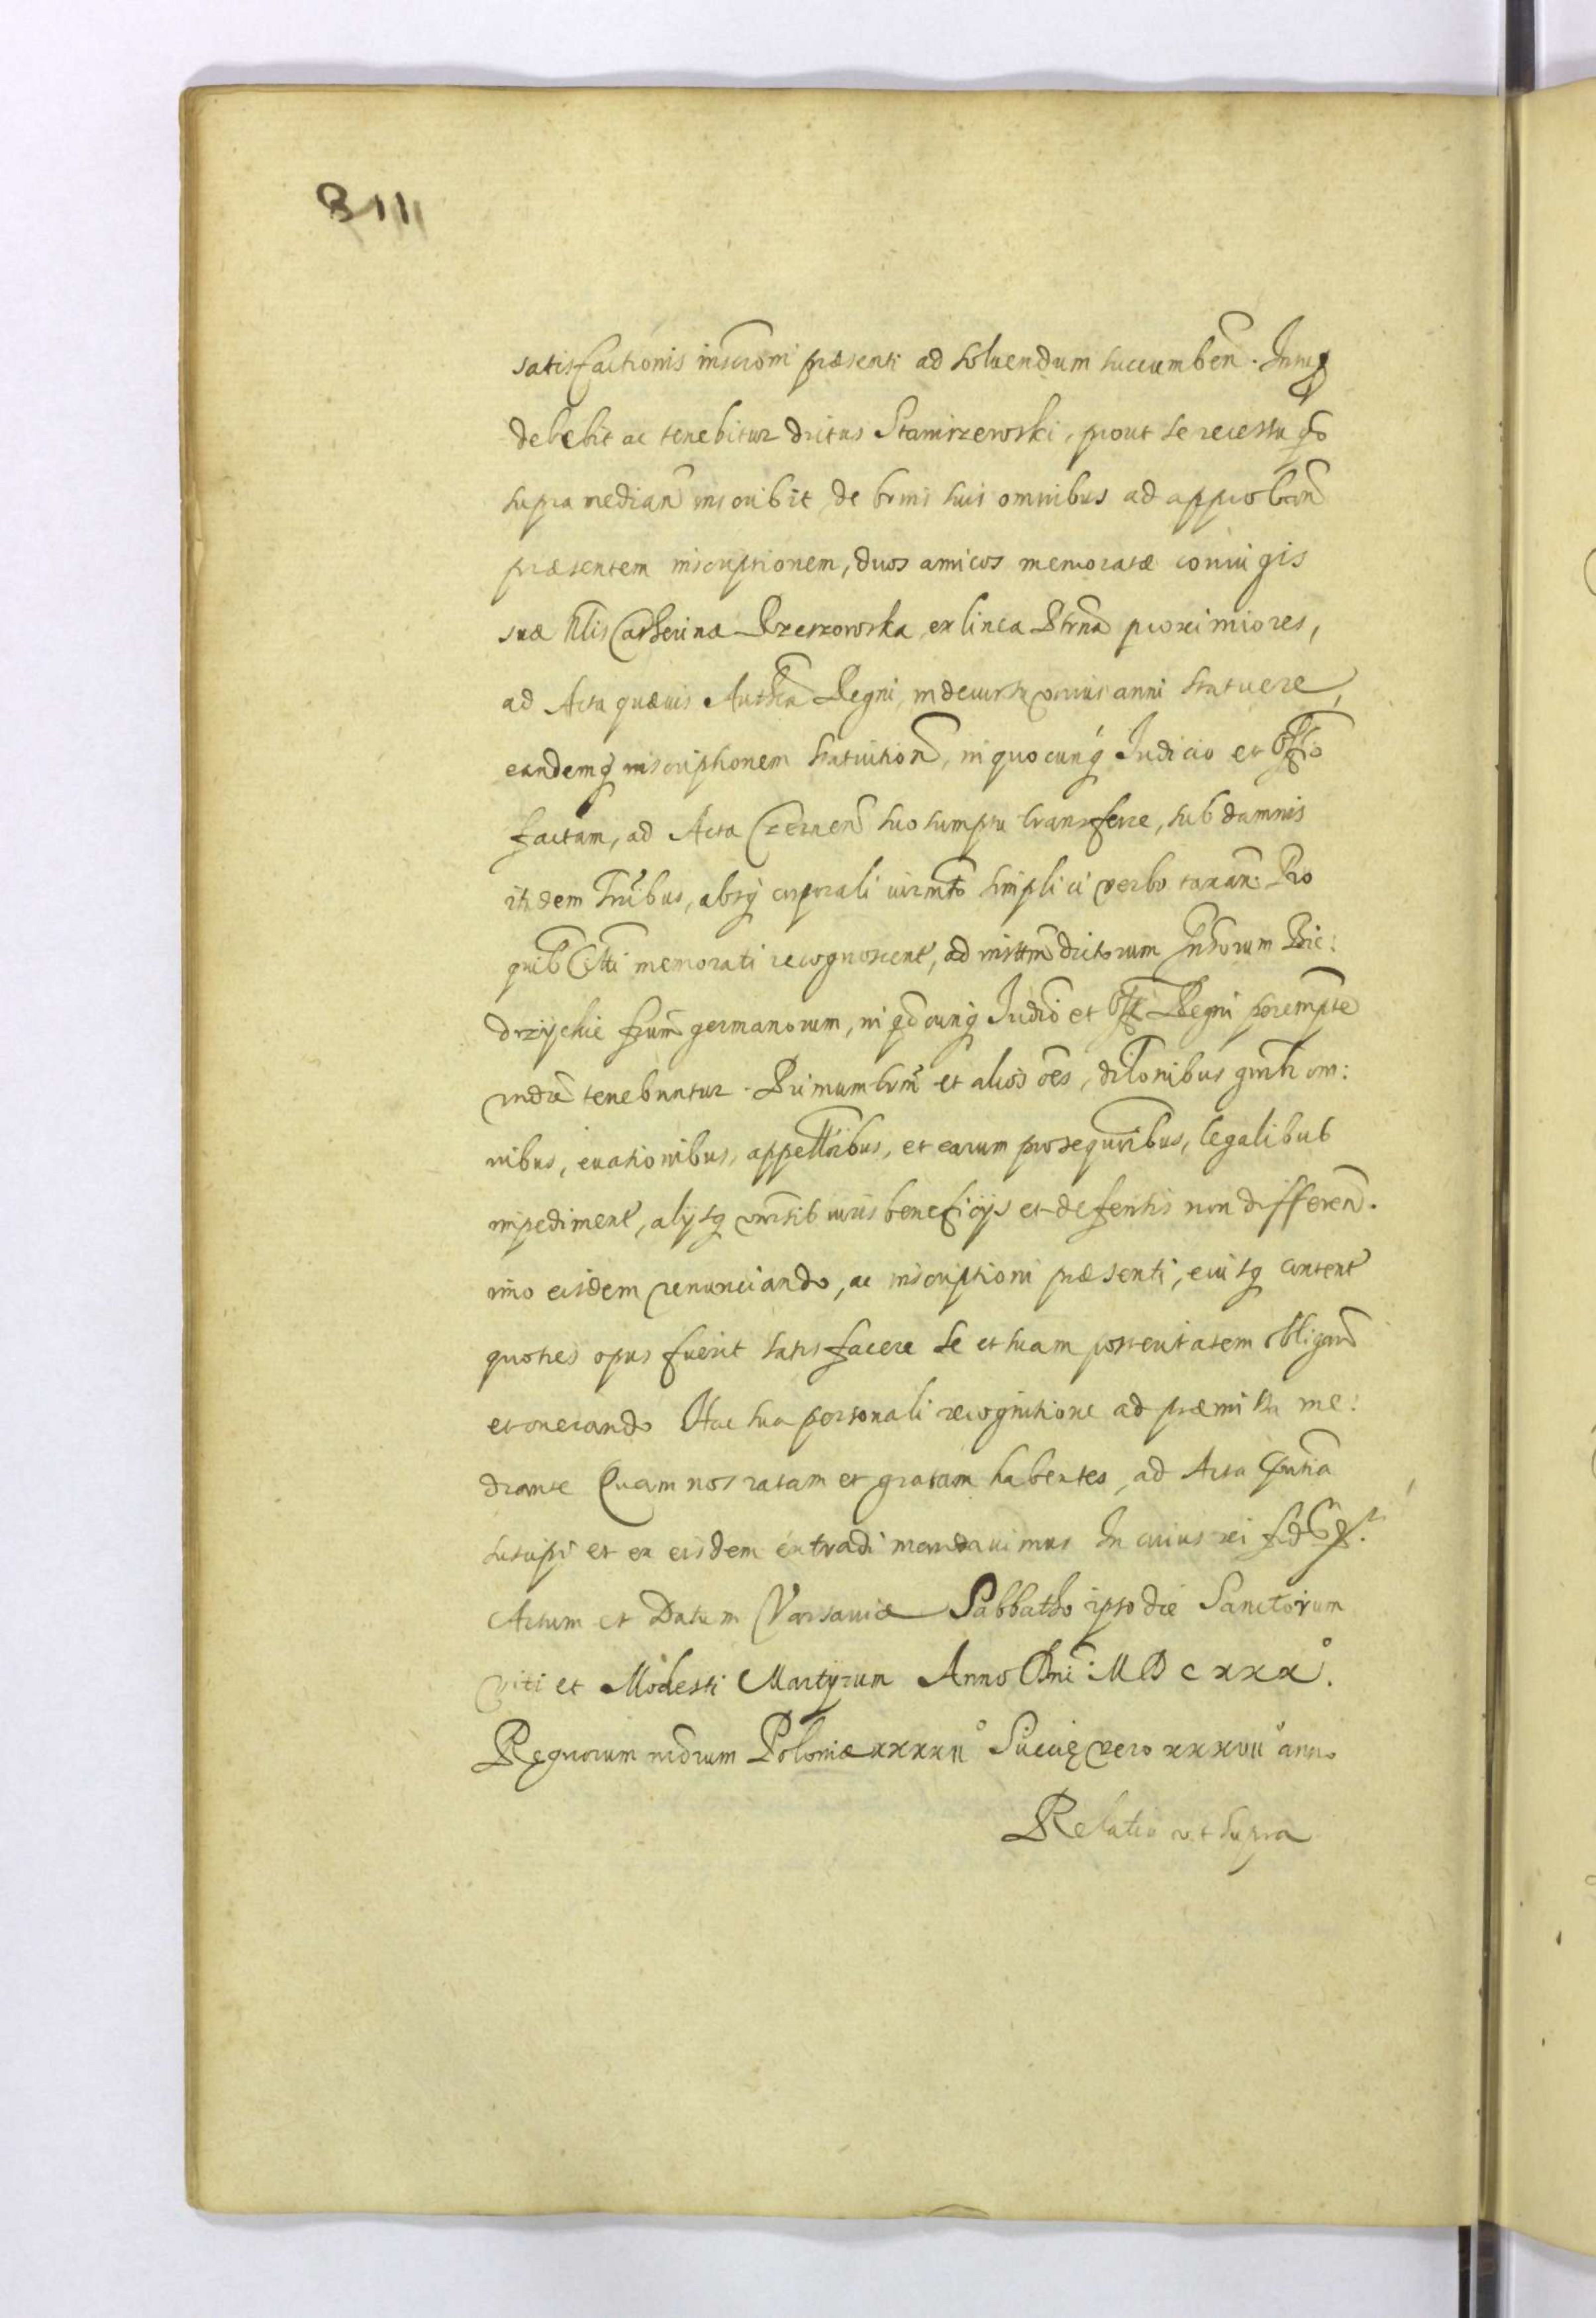 8111
satisfactionis inscrōni præsenti ad soluendum succumbeñ. Insup
debebit ac tenebitur dictus Stanirzewski, prout se recessu q̃o
supra median̄ inscribit de bonis suis omnibus ad approban̄
præsentem inscriptionem, duos amicos memoratæ coniugis
suæ Catherinæ Rzeszowska ex linea proximiores,
ad Acta quævis Auth̃ca Regni, in decursu vnius anni statuere,
eandemq; inscriptionem statuition̄, in quocunq; Judicio et Off̃io
factam, ad Acta Czernen̄ suo sumptu transferre, sub damnis
itidem t̃rribus, absq; corporali iurm̃to simplici verbo taxan̄: Pro
quib memorati recognoscent, ad inst̃m dictorum Bie:
drzyckie fr̃um germanorum, in q̃ocunq; Judic̃o et Off̃o Regni perempte
rñdr̃e tenebuntur. Primum tr̃m et alios oēs, dil̃onibus gñli om:
nibus, euationibus, appell̃onibus, et earum prosequũ̃onibus, legalibus
impediment, alijsq; vniũ̃sib iuris beneficijs et defensis non differen̄.
imo eisdem renunciando, ac inscriptioni præsenti, eiusq; content
quoties opus fuerit satisfacere se et suam posteritatem obligan̄do
et onerando Hac sua personali recognitione ad præmissa me:
diante Quam nos ratam et gratam habentes, ad Acta pñtia
suscipi et ex eisdem extradi mandauimus In cuius rei fid̃
Actum et Datum Varsauiæ Sabbatho ipso die Sanctorum
Viti et Modesti Martyrum Anno Dñi MDCXXX°.
Regnorum nr̃orum Poloniæ xxxxii° Suecię vero xxxvii° anno
Relatio vt supra